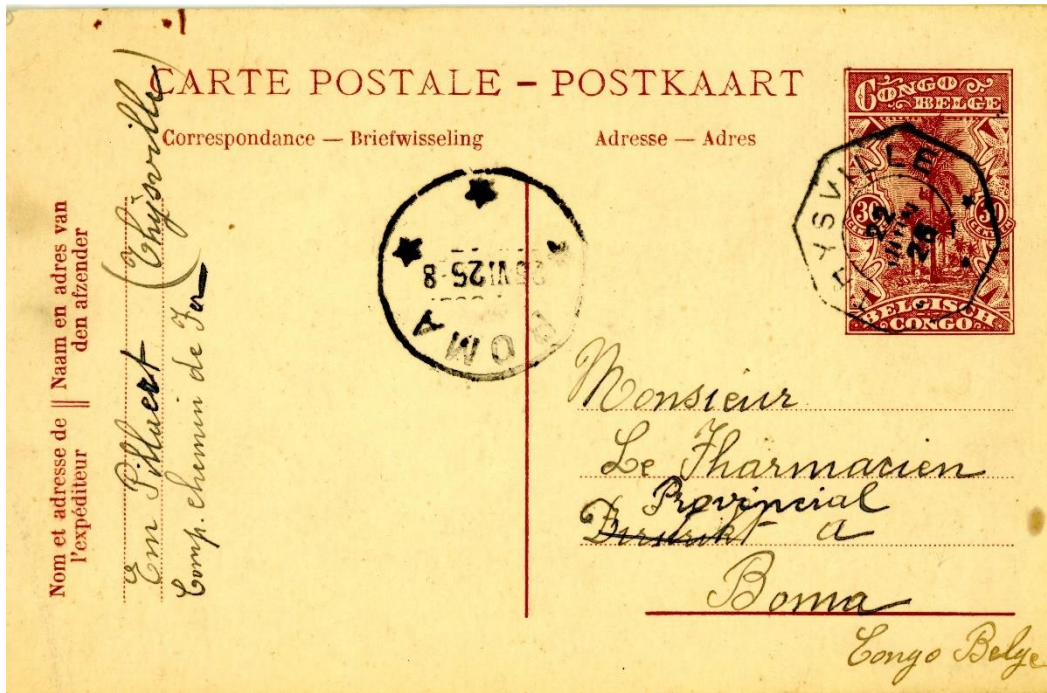 CARTE POSTALE – POSTKAART
Correspondance — Briefwisseling
Adresse — Adres
CONGO
BELGE
30
30
BELGISCH
CONGO
THYSVILLE
22
25
BOMA
26 VI 25-8
Nom et adresse de || Naam en adres van
l'expéditeur den afzender
Em Pillaert (Thijsville)
Comp. chemin de Fer
Monsieur
Le Pharmacien
Provincial
a
Boma
Congo Belge